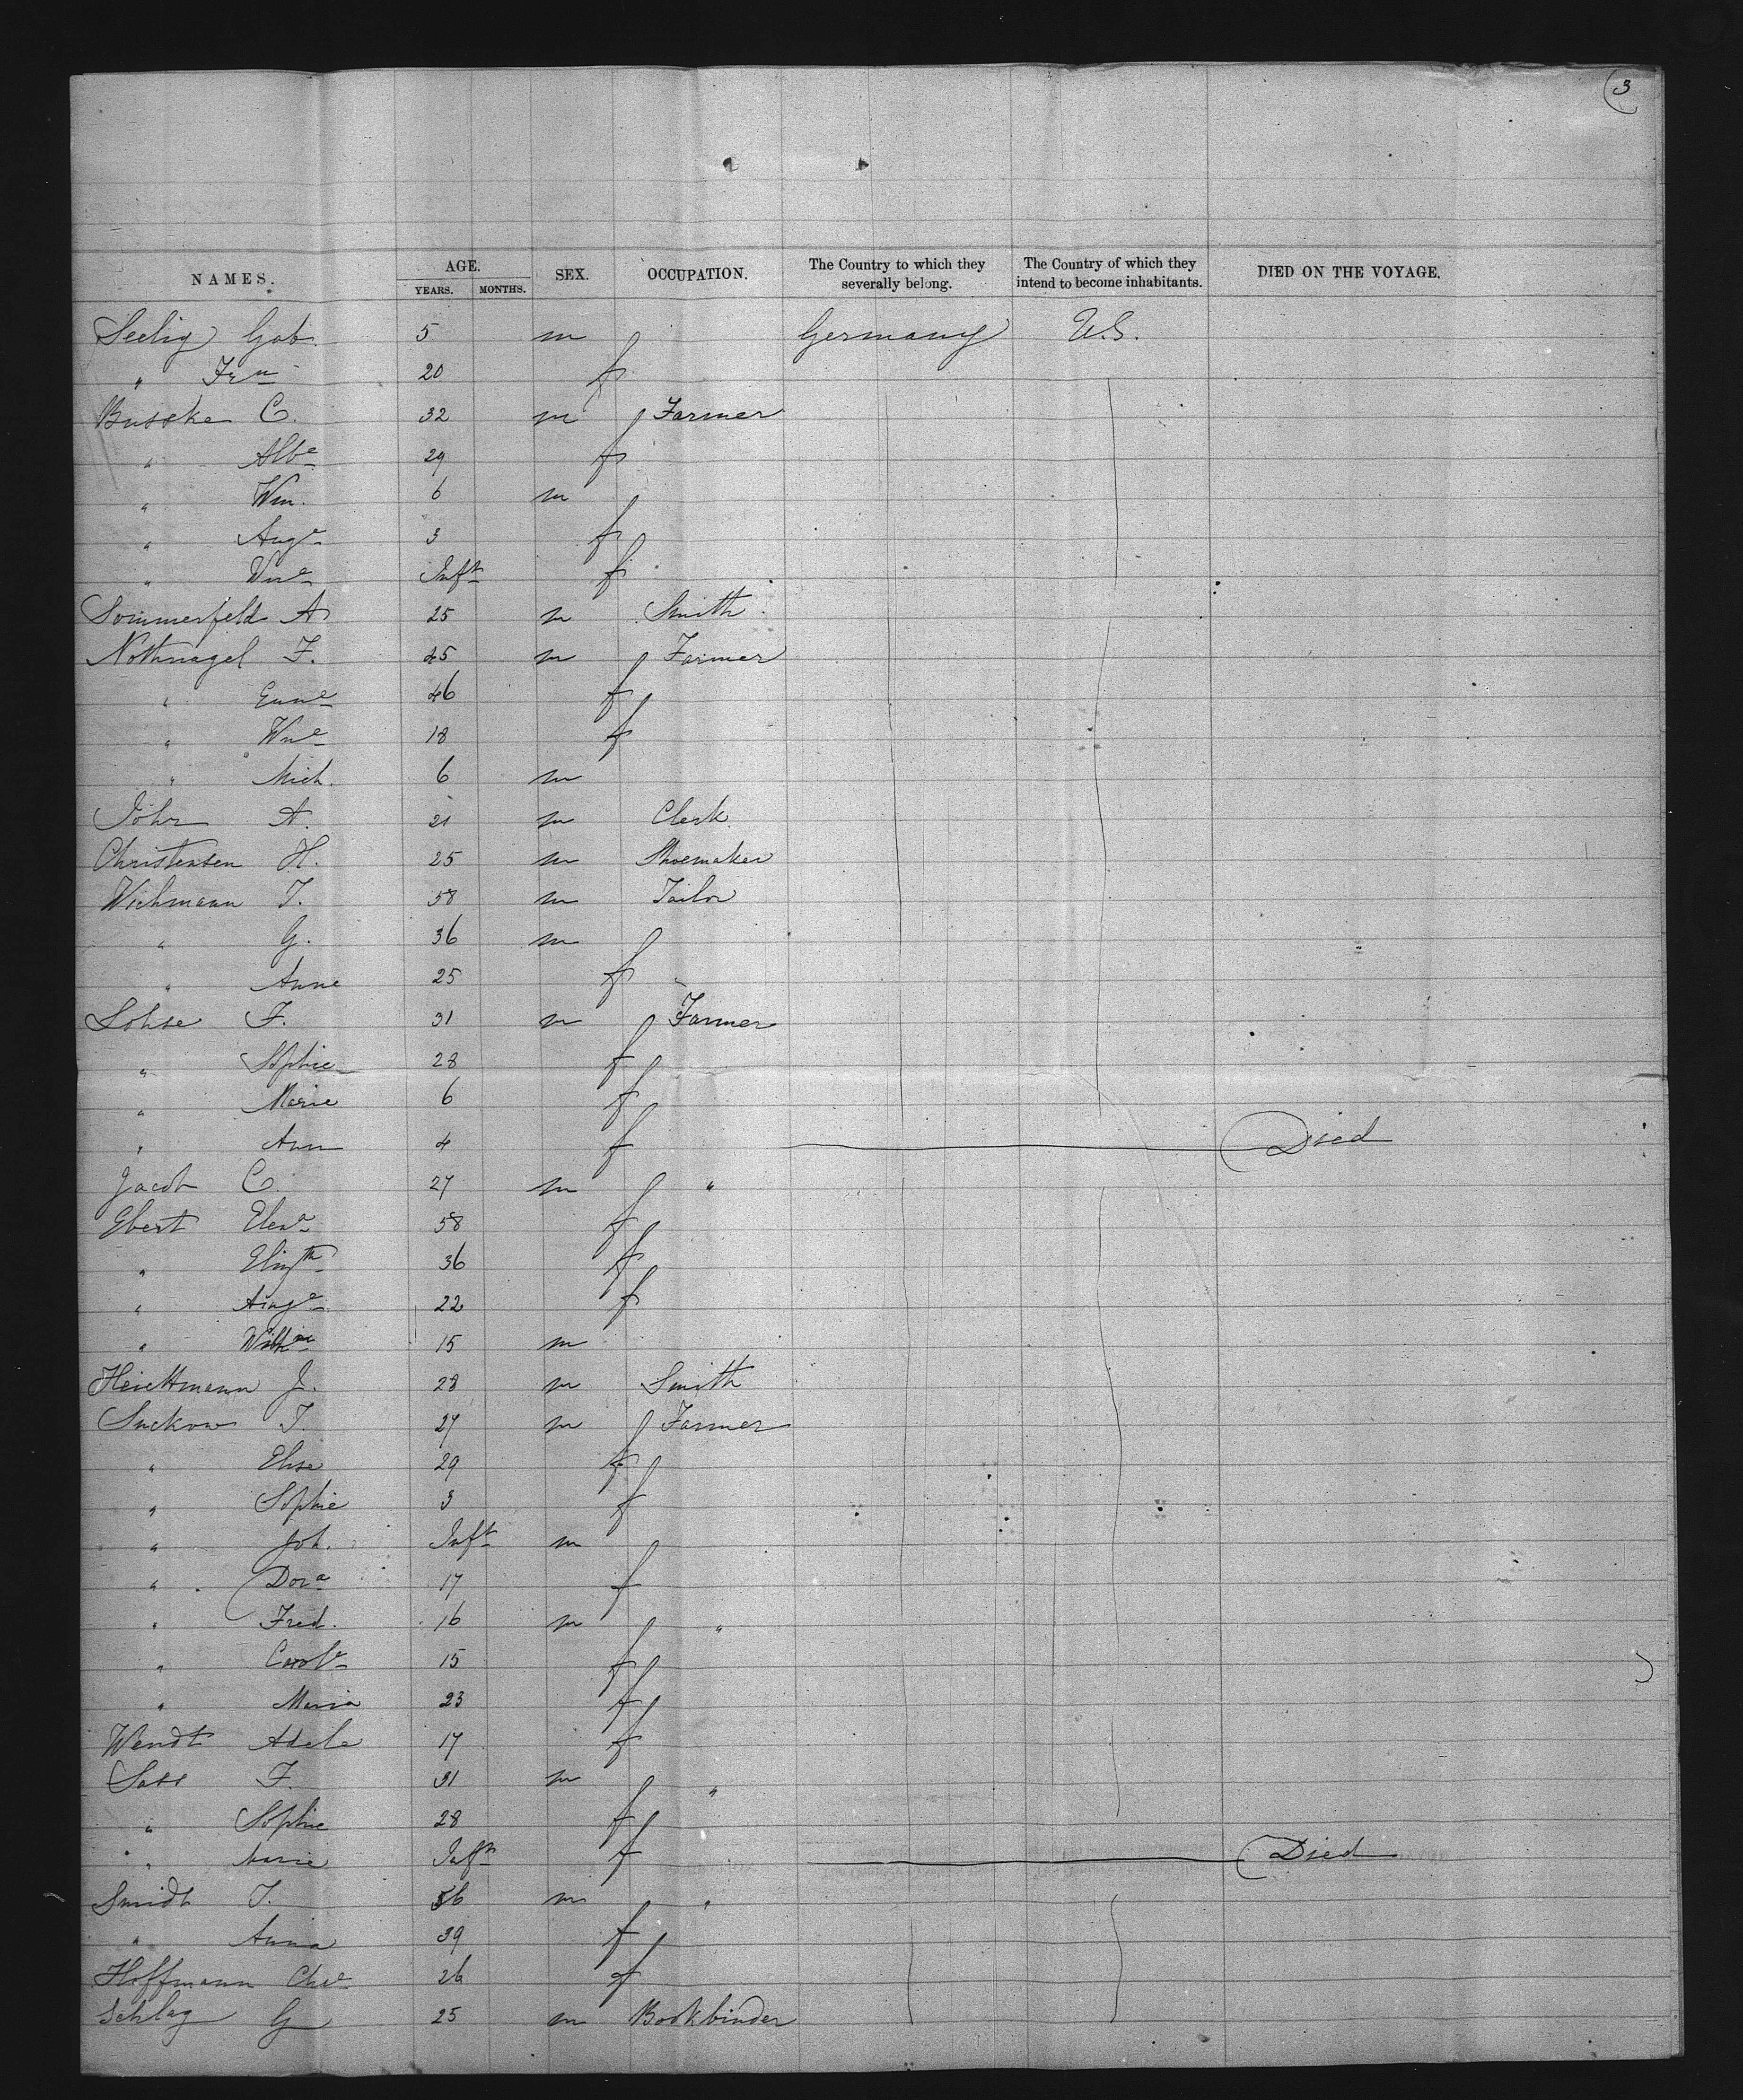 3
NAMES. AGE. YEARS. MONTHS. SEX. OCCUPATION. The Country to which they severally belong. The Country of which they intend to become inhabitants. DIED ON THE VOYAGE.
Seelig Gab. 5 m Germany U.S.
" 20 f
Busske C. 32 m Farmer
" Albe 29 f
" Wm. 6 m
" Auge 3 f
" Wne Inft f
Sommerfeld A 25 m Smith
Nothnagel F. 45 m Farmer
" 46 f
" Wne 18 f
" Mich. 6 m
Johr A. 21 m Clerk
Christensen H. 25 m Shoemaker
Wichmann J. 58 m Tailor
" G. 36 m
" Anne 25 f
Lohse F. 31 m Farmer
" Sophie 28 f
" Marie 6 f
" Ann 4 f Died
Jacob C. 27 m "
Ebert 58 f
" 36 f
" Auge 22 f
" 15 m
J. 28 m Smith
Suckow J. 27 m Farmer
" Elise 29 f
" Sophie 3 f
" Joh. Inft m
" Dora 17 f
" Fred. 16 m "
" Carole 15 f
" Maria 23 f
Wendt Adele 17 f
Sass F. 31 m "
" Sophie 28 f
" Marie Inft f Died
Smidt J. 56 m "
" Anna 39 f
Hoffmann Chre 26 f
Schlag G 25 m Bookbinder